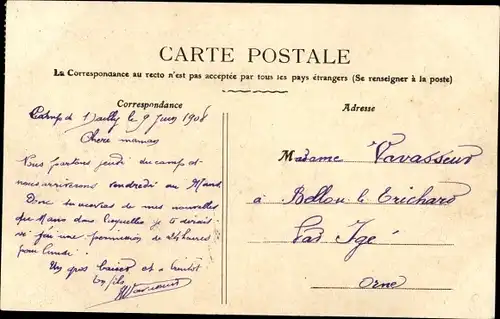 CARTE POSTALE
La Correspondance au recto n'est pas acceptée par tous les pays étrangers (Se renseigner à la poste)
Correspondance
Camp d Mailly le 9 Juin 1908
Chere maman
Nous partons jeudi du camp et
nous arriverons vendredi au Mans
Donc tu auras de mes nouvelles
du Mans dans lesquelles je te dirai
si j'ai une permission de 24 heures
pour lundi.
Un gros baiser et a bientot
ton fils
Vavasseur
Adresse
Madame Vavasseur
à Bellou le Trichard
Par Igé
Orne